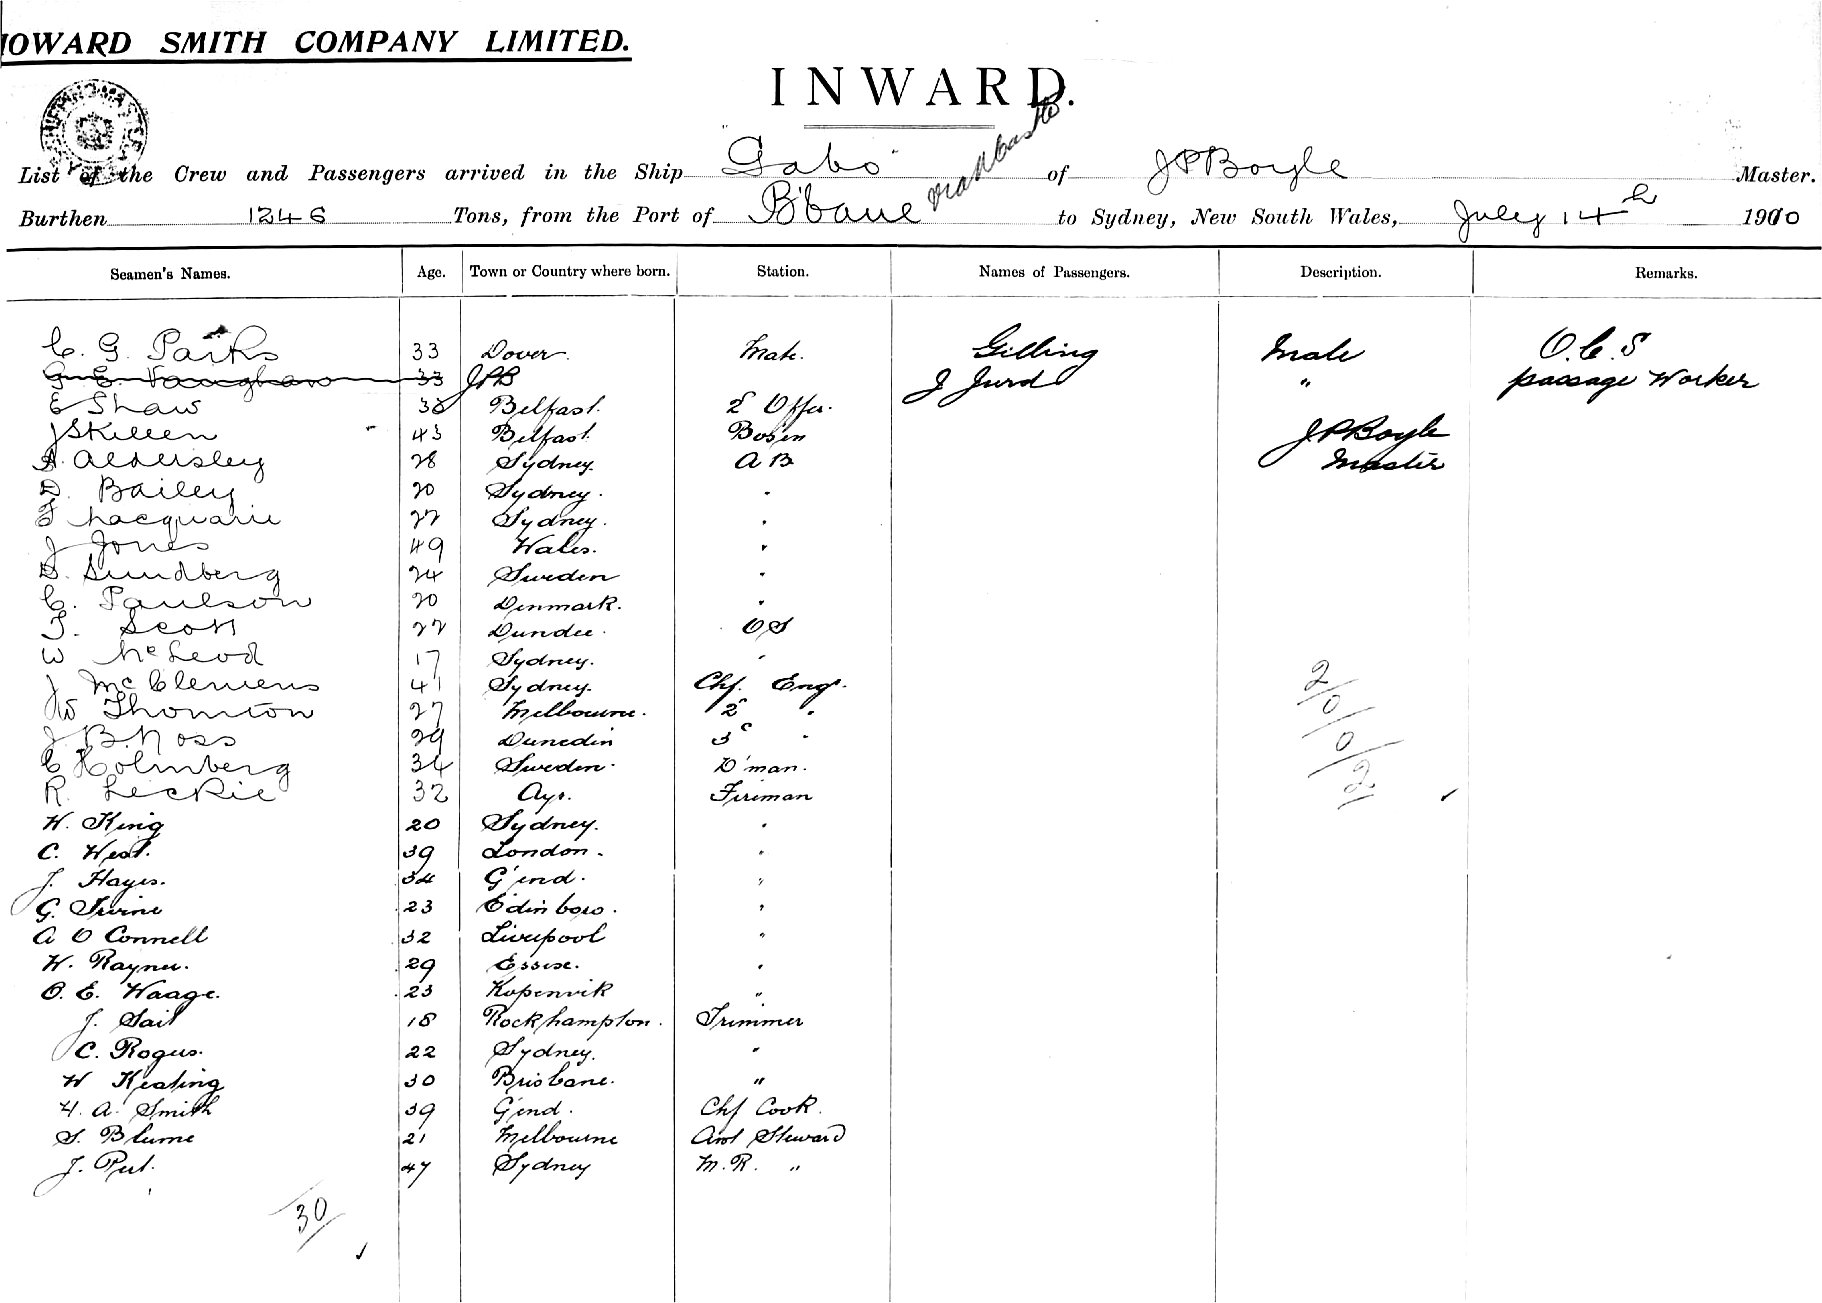 HOWARD SMITH COMPANY LIMITED.
INWARD.
List of the Crew and Passengers arrived in the Ship Gabo of J P Boyle Master.
Burthen 1246 Tons, from the Port of B'bane via Newcastle to Sydney, New South Wales, July 14th 1910
Seamen's Names. Age. Town or Country where born. Station. Names of Passengers. Description. Remarks.
C. G. Parks 33 Dover. Mate. Gilling Male O.C.S
G. E. Vaughan 33 JPB J Jurd " passage Worker
E Shaw 38 Belfast. 2 Offr.
J Skillen 43 Belfast. Bosen J P Boyle
A. Aldersley 28 Sydney. A B Master
D. Bailey 20 Sydney. "
F Macquarie 22 Sydney. "
J Jones 49 Wales. "
D. Sundberg 24 Sweden "
C. Paulson 20 Denmark. "
T. Scott 22 Dundee. O S
W McLeod 17 Sydney. "
J McClemens 41 Sydney. Chf. Engr.
W Thornton 27 Melbourne. 2 "
J B. Ross 29 Dunedin 3 "
C Holmberg 34 Sweden. D'man.
R. Leckie 32 Ayr. Fireman
W. King 20 Sydney. "
C. West. 39 London. "
J. Hayes. 34 G'end. "
G. Irvine 23 Edinboro. "
A O Connell 32 Liverpool "
W. Rayner. 29 Essex. "
O. E. Waage. 23 Kopervik "
J. Sait 18 Rockhampton. Trimmer
C. Rogers. 22 Sydney. "
W Keating 30 Brisbane. "
H. A. Smith 39 G'end. Chf Cook.
S. Blume 21 Melbourne Asst Steward
J. Peet. 47 Sydney M.R. "
2/0/0/2
30